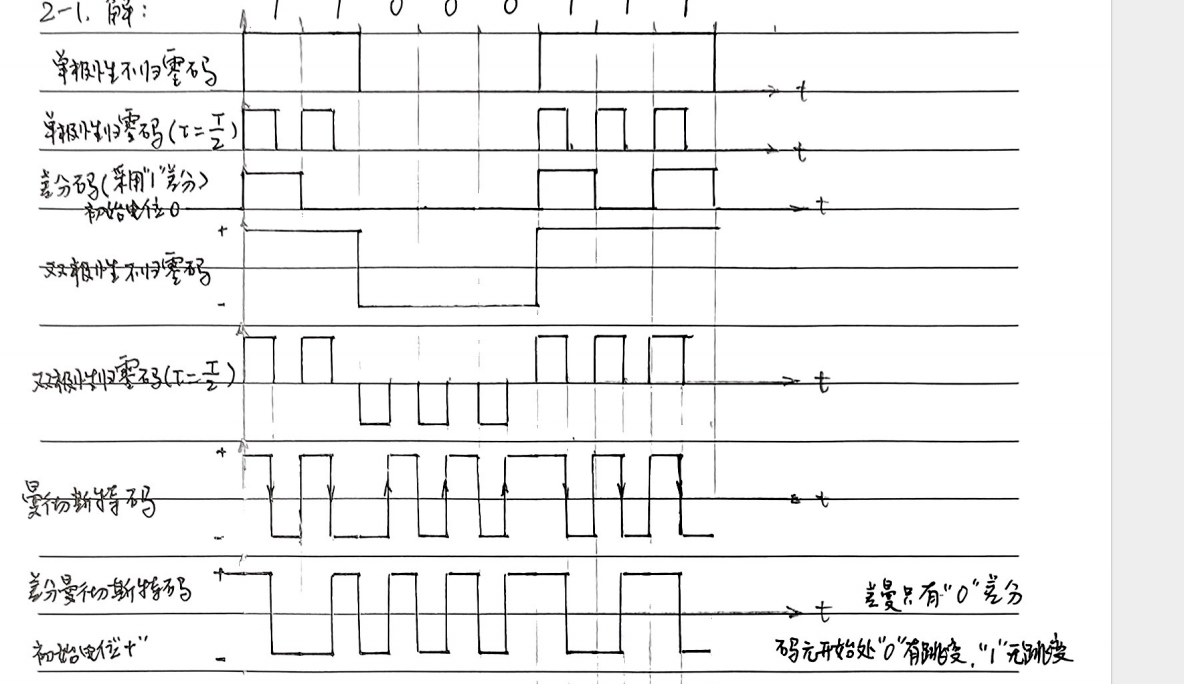 2-1. 解: 1 1 0 0 0 1 1 1
单极性不归零码 t
单极性归零码(τ=T/2) t
差分码(采用"1"差分) t
初始电位0
+
双极性不归零码
-
双极性归零码(τ=T/2) t
+
曼彻斯特码 t
-
+
差分曼彻斯特码 t 差曼只有"0"差分
初始电位"+" 码元开始处"0"有跳变,"1"无跳变
-